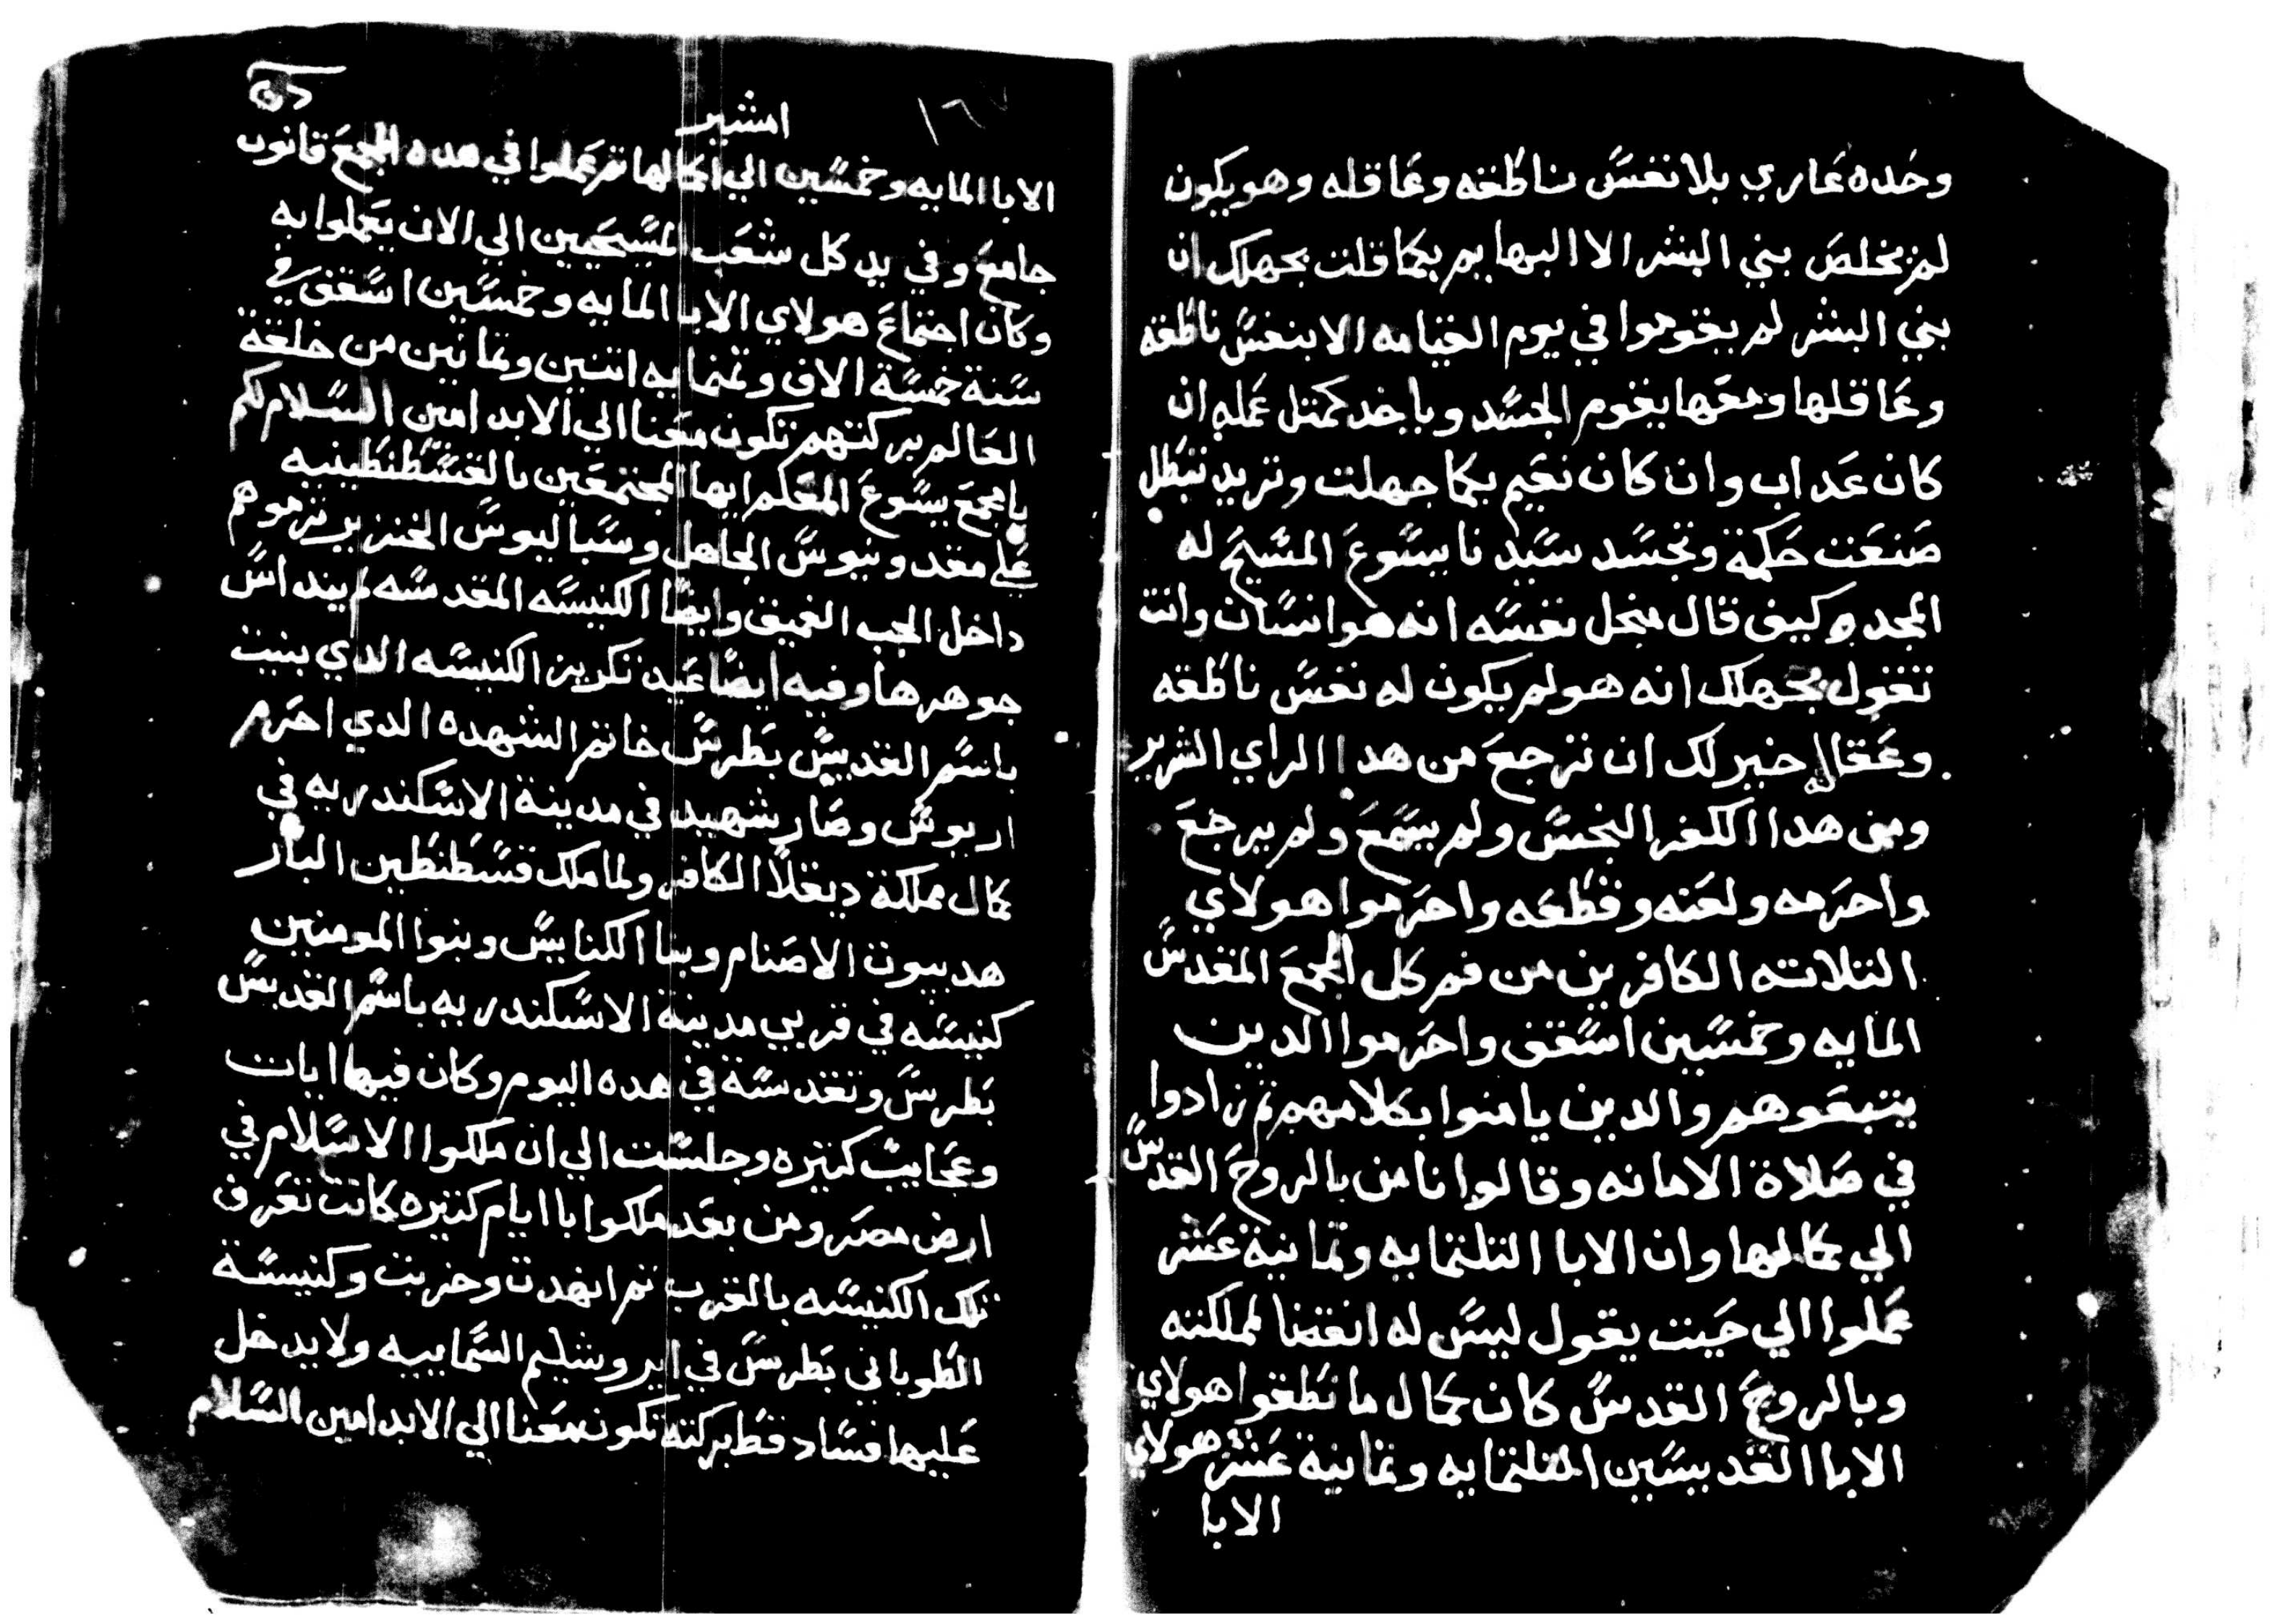 وحده عاري بلا نفس ناطقه وعاقله وهو يكون
لم يخلص بني البشر الا البهايم بما قلت بجهلك ان
بني البشر لم يقوموا في يوم القيامه الا بنفس ناطقه
وعاقلها ومعها يقوم الجسد وياخد كمتل عمله ان
كان عداب وان كان نعيم بما جهلت وتريد تبطل
صنعت حكمة وتجسد سيدنا يسوع المسيح له
المجد وكيف قال منجل نفسه انه هو انسان وانت
تقول بجهلك انه هو لم يكون له نفس ناطقه
وعقال خير لك ان ترجع من هدا الراي الشرير
ومن هدا الكفر النجس ولم يسمع ولم يرجع
واحرمه ولعنه وقطعه واحرموا هولاي
التلاته الكافرين من فم كل المجمع المقدس
المايه وخمسين اسقف واحرموا الدين
يتبعوهم والدين يامنوا بكلامهم تم زادوا
في صلاة الامانه وقالوا نامن بالروح القدس
الي كمالها وان الابا التلتمايه وتمانية عشر
عملوا الي حيت يقول ليس له انقضا لمملكته
وبالروح القدس كان كمال ما نطقوا هولاي
الابا القديسين التلتمايه وتمانية عشر هولاي
الابا
١٦٧
امشير
الابا المايه وخمسين الي اكمالها تم عملوا في هده المجمع قانون
جامع وفي يد كل شعب المسيحيين الي الان يعملوا به
وكان اجتماع هولاي الابا المايه وخمسين اسقف في
سنة خمسة الاف وتمنمايه اتنين وتمانين من خلقة
العالم بركتهم تكون معنا الي الابد امين السلام لكم
يا مجمع يسوع المعكم ايها المجتمعين بالقسطنطينيه
علي مقدونيوس الجاهل وسباليوس الخنزير ترموهم
داخل الجب الغميق وايضا الكنيسه المقدسه لم ينداس
جوهرها وفيه ايضا عيد تكريز الكنيسه الدي بنيت
باسم القديس بطرس خاتم الشهده الدي احرم
اريوس وصار شهيد في مدينة الاسكندريه في
كمال مملكة ديقلا الكافر ولما ملك قسطنطين البار
هد بيوت الاصنام وبنا الكنايس وبنوا المومنين
كنيسه في قربي مدينة الاسكندريه باسم القديس
بطرس وتقدسة في هده اليوم وكان فيها ايات
وعجايب كتيره وجلست الي ان ملكوا الاسلام في
ارض مصر ومن بعد ملكوا با ايام كتيره كانت تعرف
تلك الكنيسه بالقرب تم انهدت وخربت وكنيسة
الطوباني بطرس في ايروشليم السماييه ولا يدخل
عليها فساد قط بركته تكون معنا الي الابد امين السلام